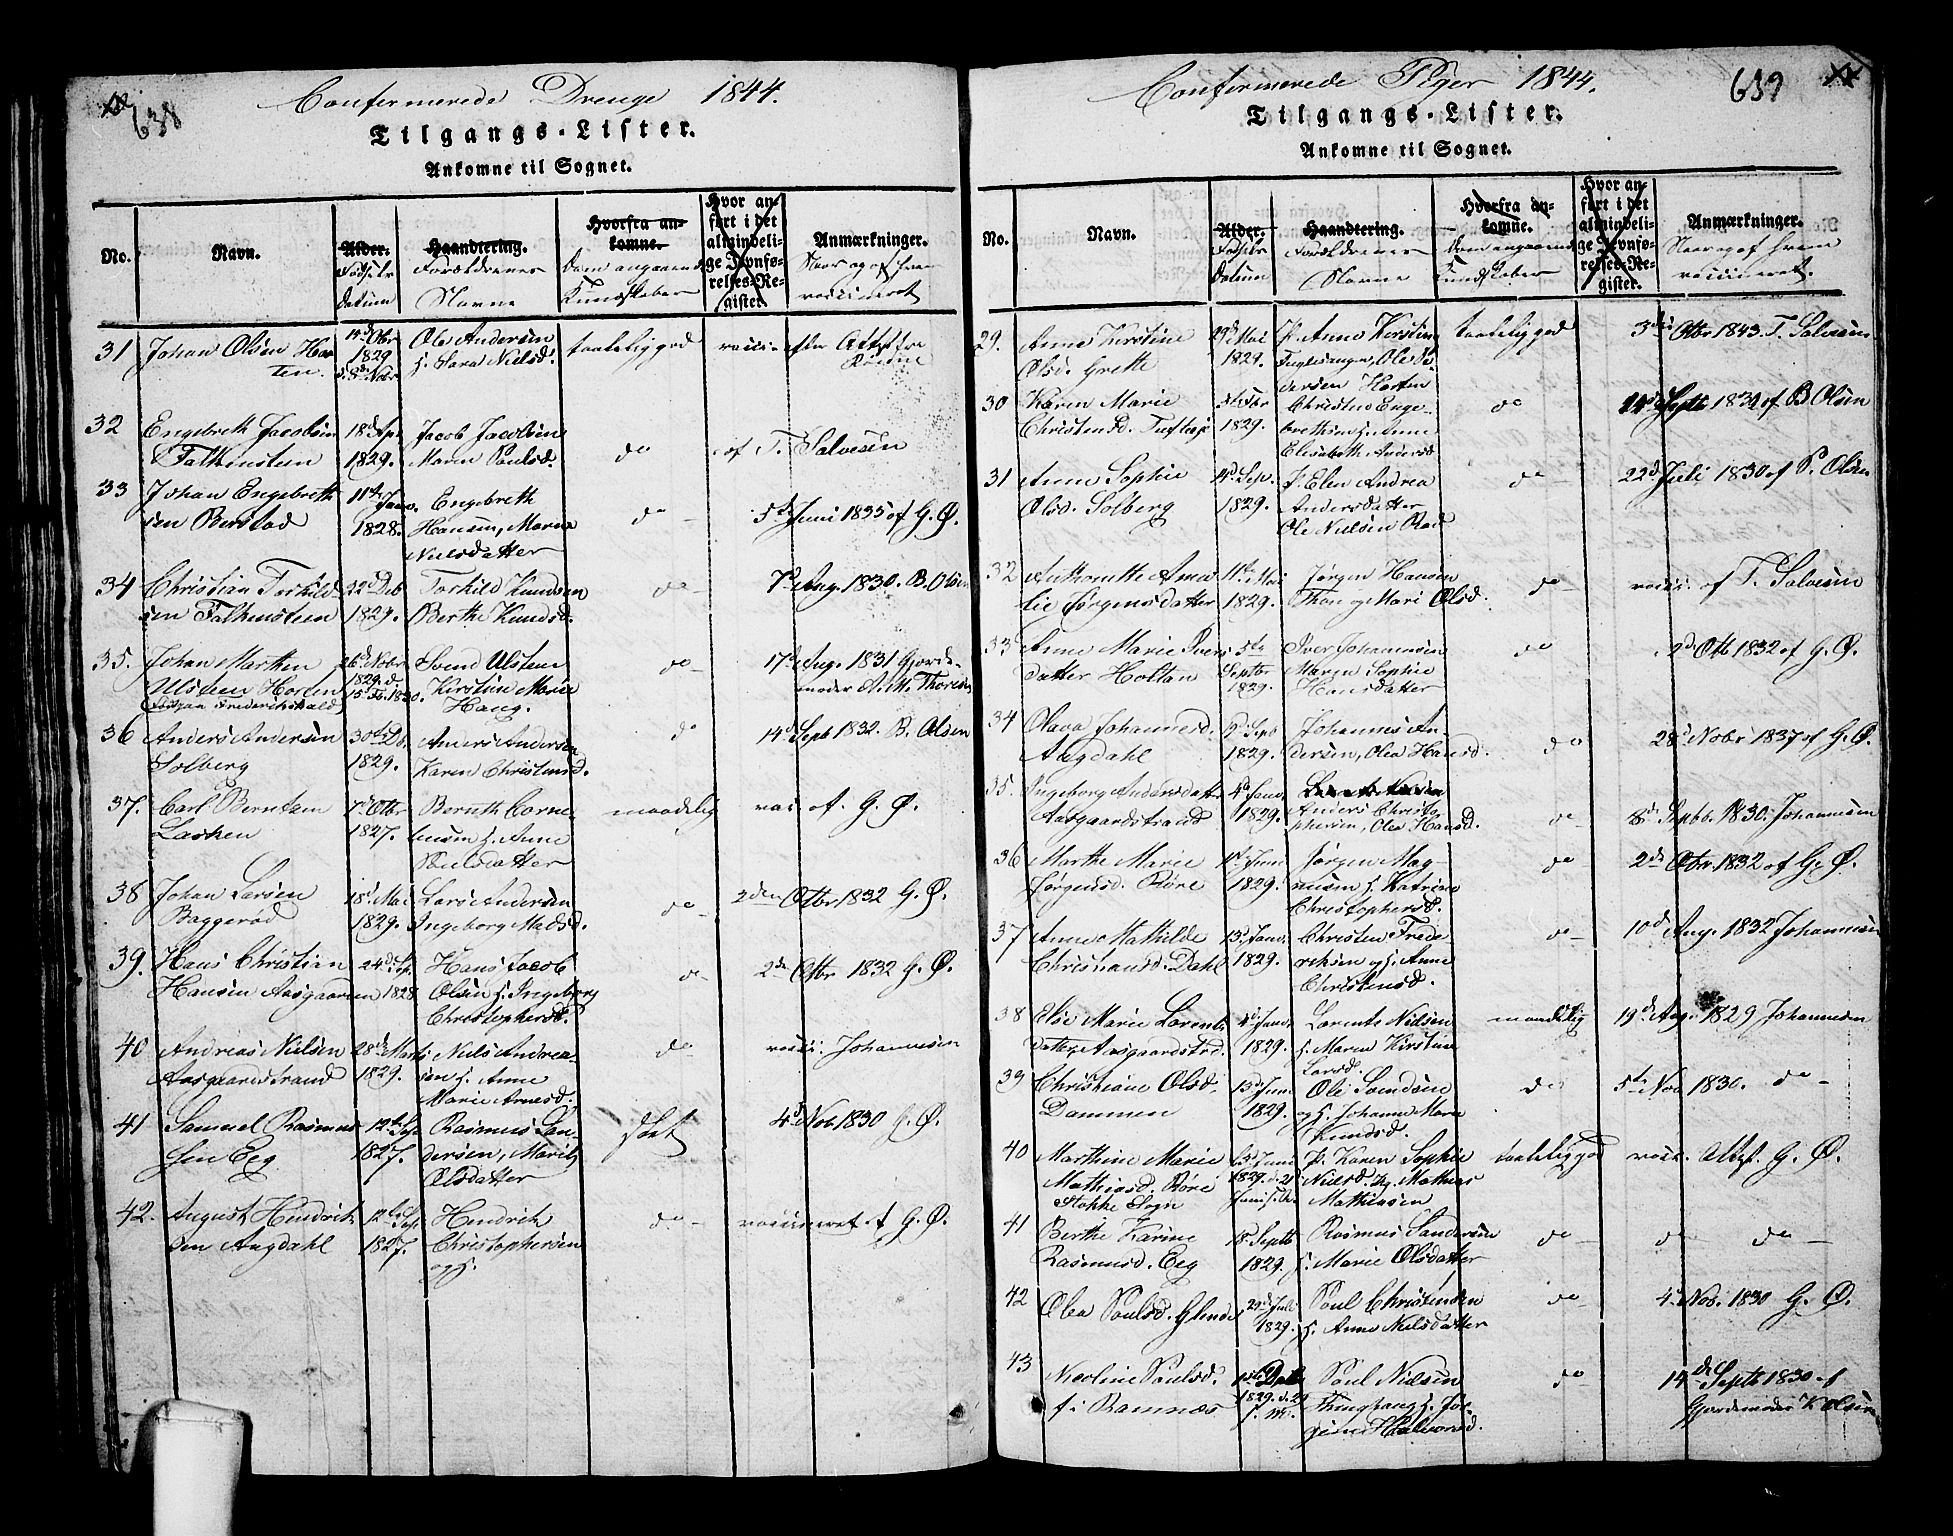 638
Confirmerede Drenge 1844.
Tilgangs-Lister.
Ankomne til Sognet.
No.
Navn.
Alder.
Fødsels
datum
Haandtering.
Forældrenes
Navne
Hvorfra an-
komne.
Dom angaaende
Kundskaber
Hvor an-
ført i det
almindeli-
ge Jevnfø-
relses-Re-
gister.
Anmærkninger.
Naar og af hvem
vaccineret
31 Johan Olsen Hor-
ten.
1829
Ole Andersen
h. Sara Nielsd.
taalelig god
vacci. efter Attest fra
32 Engebreth Jacobsen
Falkensteen
18d Apr
1829.
Jacob Jacobsen
Maren Poulsd.
do
af T. Salvesen
33 Johan Engebreth
sen Berstad
11te Janv.
1828.
Engebreth
Hansen, Maren
Nielsdatter
do
5te Juni 1835 af G. Ø.
34 Christian Torkild
sen Falkensteen
22d Feb
1829.
Torkild Knudsen
Berthe Knudsd.
do
7d Aug. 1830. B. Olsen
35. Johan Marthin
Ulsteen Horten
26d Nobr
1829. d.
15 Fb. 1830.
Svend Ulsteen
Kirstine Marie
Haug.
do
17d Aug. 1831 Gjorde-
moder A. M. Thoresen
36 Anders Andersen
Solberg
30te Db.
1829.
Anders Andersen
Karen Christensd.
do
14d Sept 1832. B. Olsen
37. Carl Berntsen
Løvhen
7d Otbr
1827.
Bernth Corne-
liusen h. Anne
Poulsdatter
maadelig
vac. af. G. Ø.
38 Johan Larsen
Baggerød
18d Mai
1829.
Lars Andersen
Ingeborg Madsd.
do
2den Otbr 1832 G. Ø.
39. Hans Christian
Hansen Aasgaarden
24d Sep.
1828
Hans Jacob
Olsen h. Ingeborg
Christophersd.
do
2de Otbr 1832 G. Ø.
40 Andreas Nielsen
Aasgaardstrand
28de Marts
1829.
Niels Andrea-
sen h. Anne
Marie Arnesd.
do
vacci. Johannesen
41 Samuel Rasmus
sen Eeg
12te Sep
1827.
Rasmus San-
dersen, Marith
Olsdatter
slet
4d Nob 1830 G. Ø.
42. August Hendrik
sen Augdahl
12te Sep
1827.
Hendrik
Christophersen
og h.
do
vaccineret af G. Ø.
639
Confirmerede Piger 1844.
Tilgangs-Lister.
Ankomne til Sognet.
No.
Navn.
Alder.
Fødsels
Datum
Haandtering.
Forældrenes
Navne
Hvorfra an-
komne.
Dom angaaende
Kundskaber
Hvor an-
ført i det
almindeli-
ge Jevnfø-
relses-Re-
gister.
Anmærkninger.
Naar og af hvem
vaccineret.
29. Anne Kirstine
Olsd. Grette
29d Mai
1829.
P. Anne Kirstine
Fuglesanger, Ole Pe-
dersen Horten
taalelig god
3die Otbr 1843. T. Salvesen
30 Karen Marie
Christensd.
1829.
Christen Enge-
brethsen h. Anne
Elisabeth Andersd
do
14d Septb 1830 af B Olsen
31 Anne Sophie
Olsd. Solberg
14d Sep.
1829.
P. Elen Andrea
Andersdatter
Ole Nielsen Rød
do
22d Juli 1830 af P. Olsen
32 Anthonette Ama
lie Jørgensdatter
11te Mai
1829.
Jørgen Hansen
Thon og Mari Olsd.
do
vacci. af T. Salvesen
33 Anne Marie Ivers
datter Holtan
5te
Septbr
1829.
Iver Johannesen
Maren Sophie
Hansdatter
do
2d Otb 1832 af G. Ø.
34 Olava Johannesd.
Augdahl
9d Sept
1829.
Johannes An-
dersen, Olea Hansd.
do
28d Nobr 1837 af G. Ø.
35. Ingeborg Andersdatter
Aasgaardstrand
4d Janv.
1829.
Anders Christo
phersen, Olea Hansd.
do
8d Septb. 1830. Johannesen
36 Marthe Marie
Jørgensd. Røre
1829.
Jørgen Mag-
nusen h. Katrine
Christophersd.
do
2de Otbr. 1832 af G. Ø.
37 Anne Mathilde
Christiansd. Dahl
13d Janv.
1829.
Christen Frede-
riksen og h. Anne
Christensd.
do
10d Aug. 1832 Johannesen
38 Else Marie Lorents
datter Aasgaardstrd.
4d Janv.
1829.
Lorents Nielsen
h. Maren Kirstine
Larsd.
maadelig
19d Aug. 1829 Johannesen
39 Christiane Olsd.
Dammen
13d Juni
1829.
Ole Svendsen
og h. Johanne Marie
Knudsd.
do
5te Nob 1830. do
40 Marthine Marie
Mathiasd. Røre
Stokke Sogn
1829. d. 21
P. Karen Sophie
Nielsd. og Mathias
Mathiesen
taalelig god
vacc. Attest. G. Ø.
41 Berthe Karine
Rasmusd. Eeg
18d Septb
1829.
Rasmus Sandersen
h. Marie Olsdatter
do
do do
42 Olea Poulsd. Glende
29d Juli
1829.
Poul Christensen
h. Anne Nielsdatter
do
4d Nob. 1830 G. Ø.
43 Nicoline Poulsd.
f. i Ramnæs
1829. d. 29
Poul Nielsen
h. Jør-
gine Halvorsd.
do
14de Septb 1830 af
Gjordemoder K Olsen